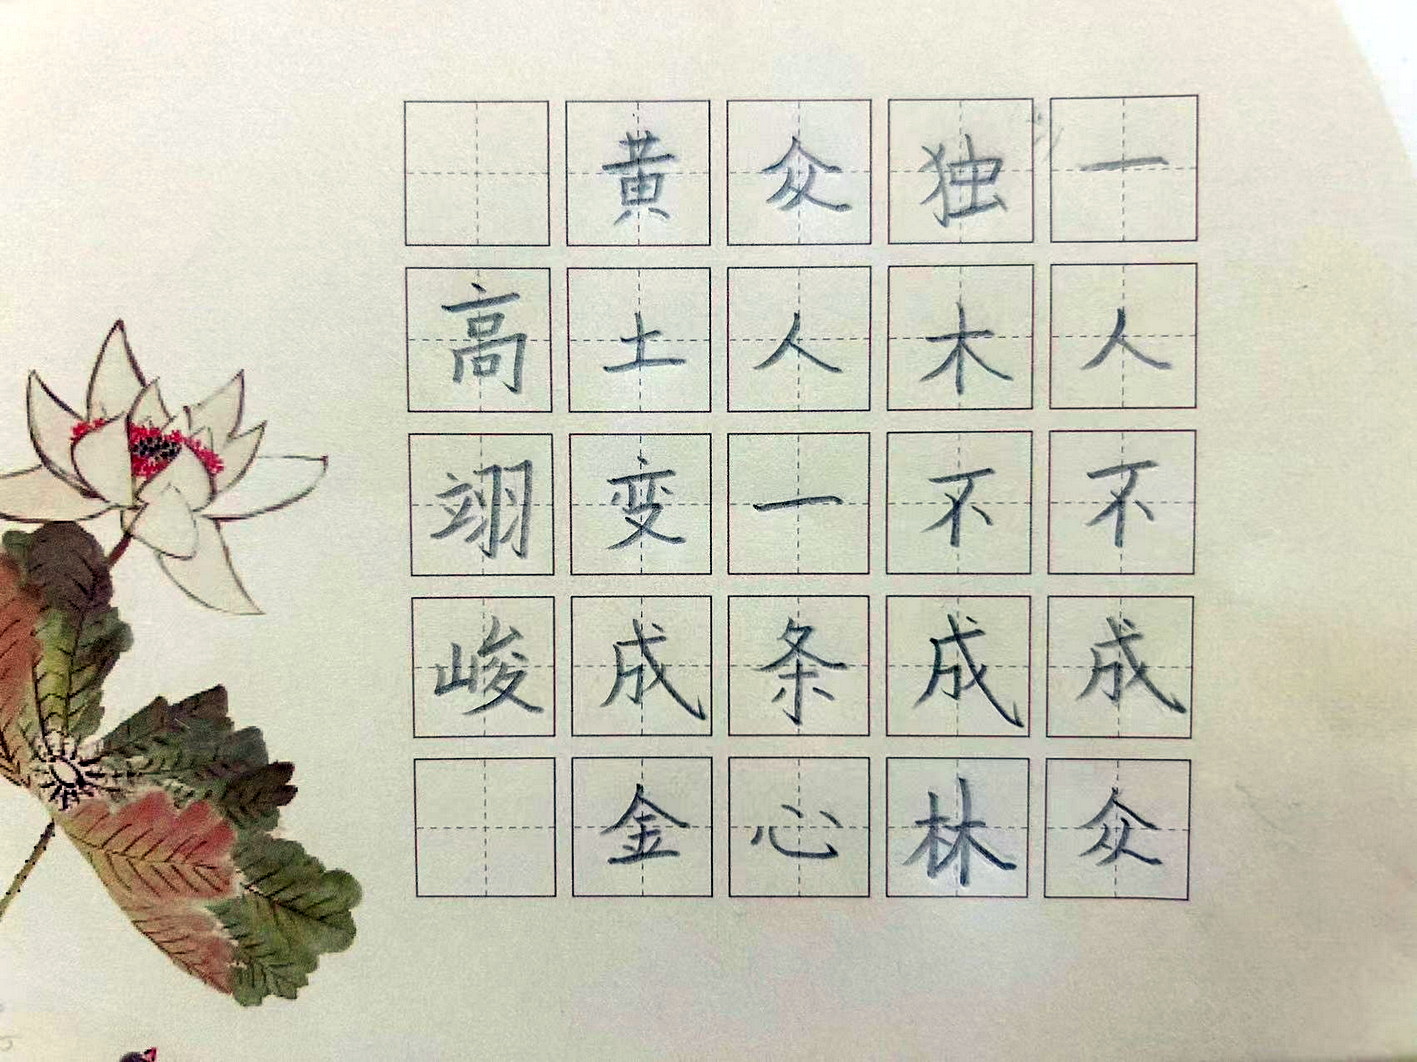 一人不成众
独木不成林
众人一条心
黄土变成金
高翊峻